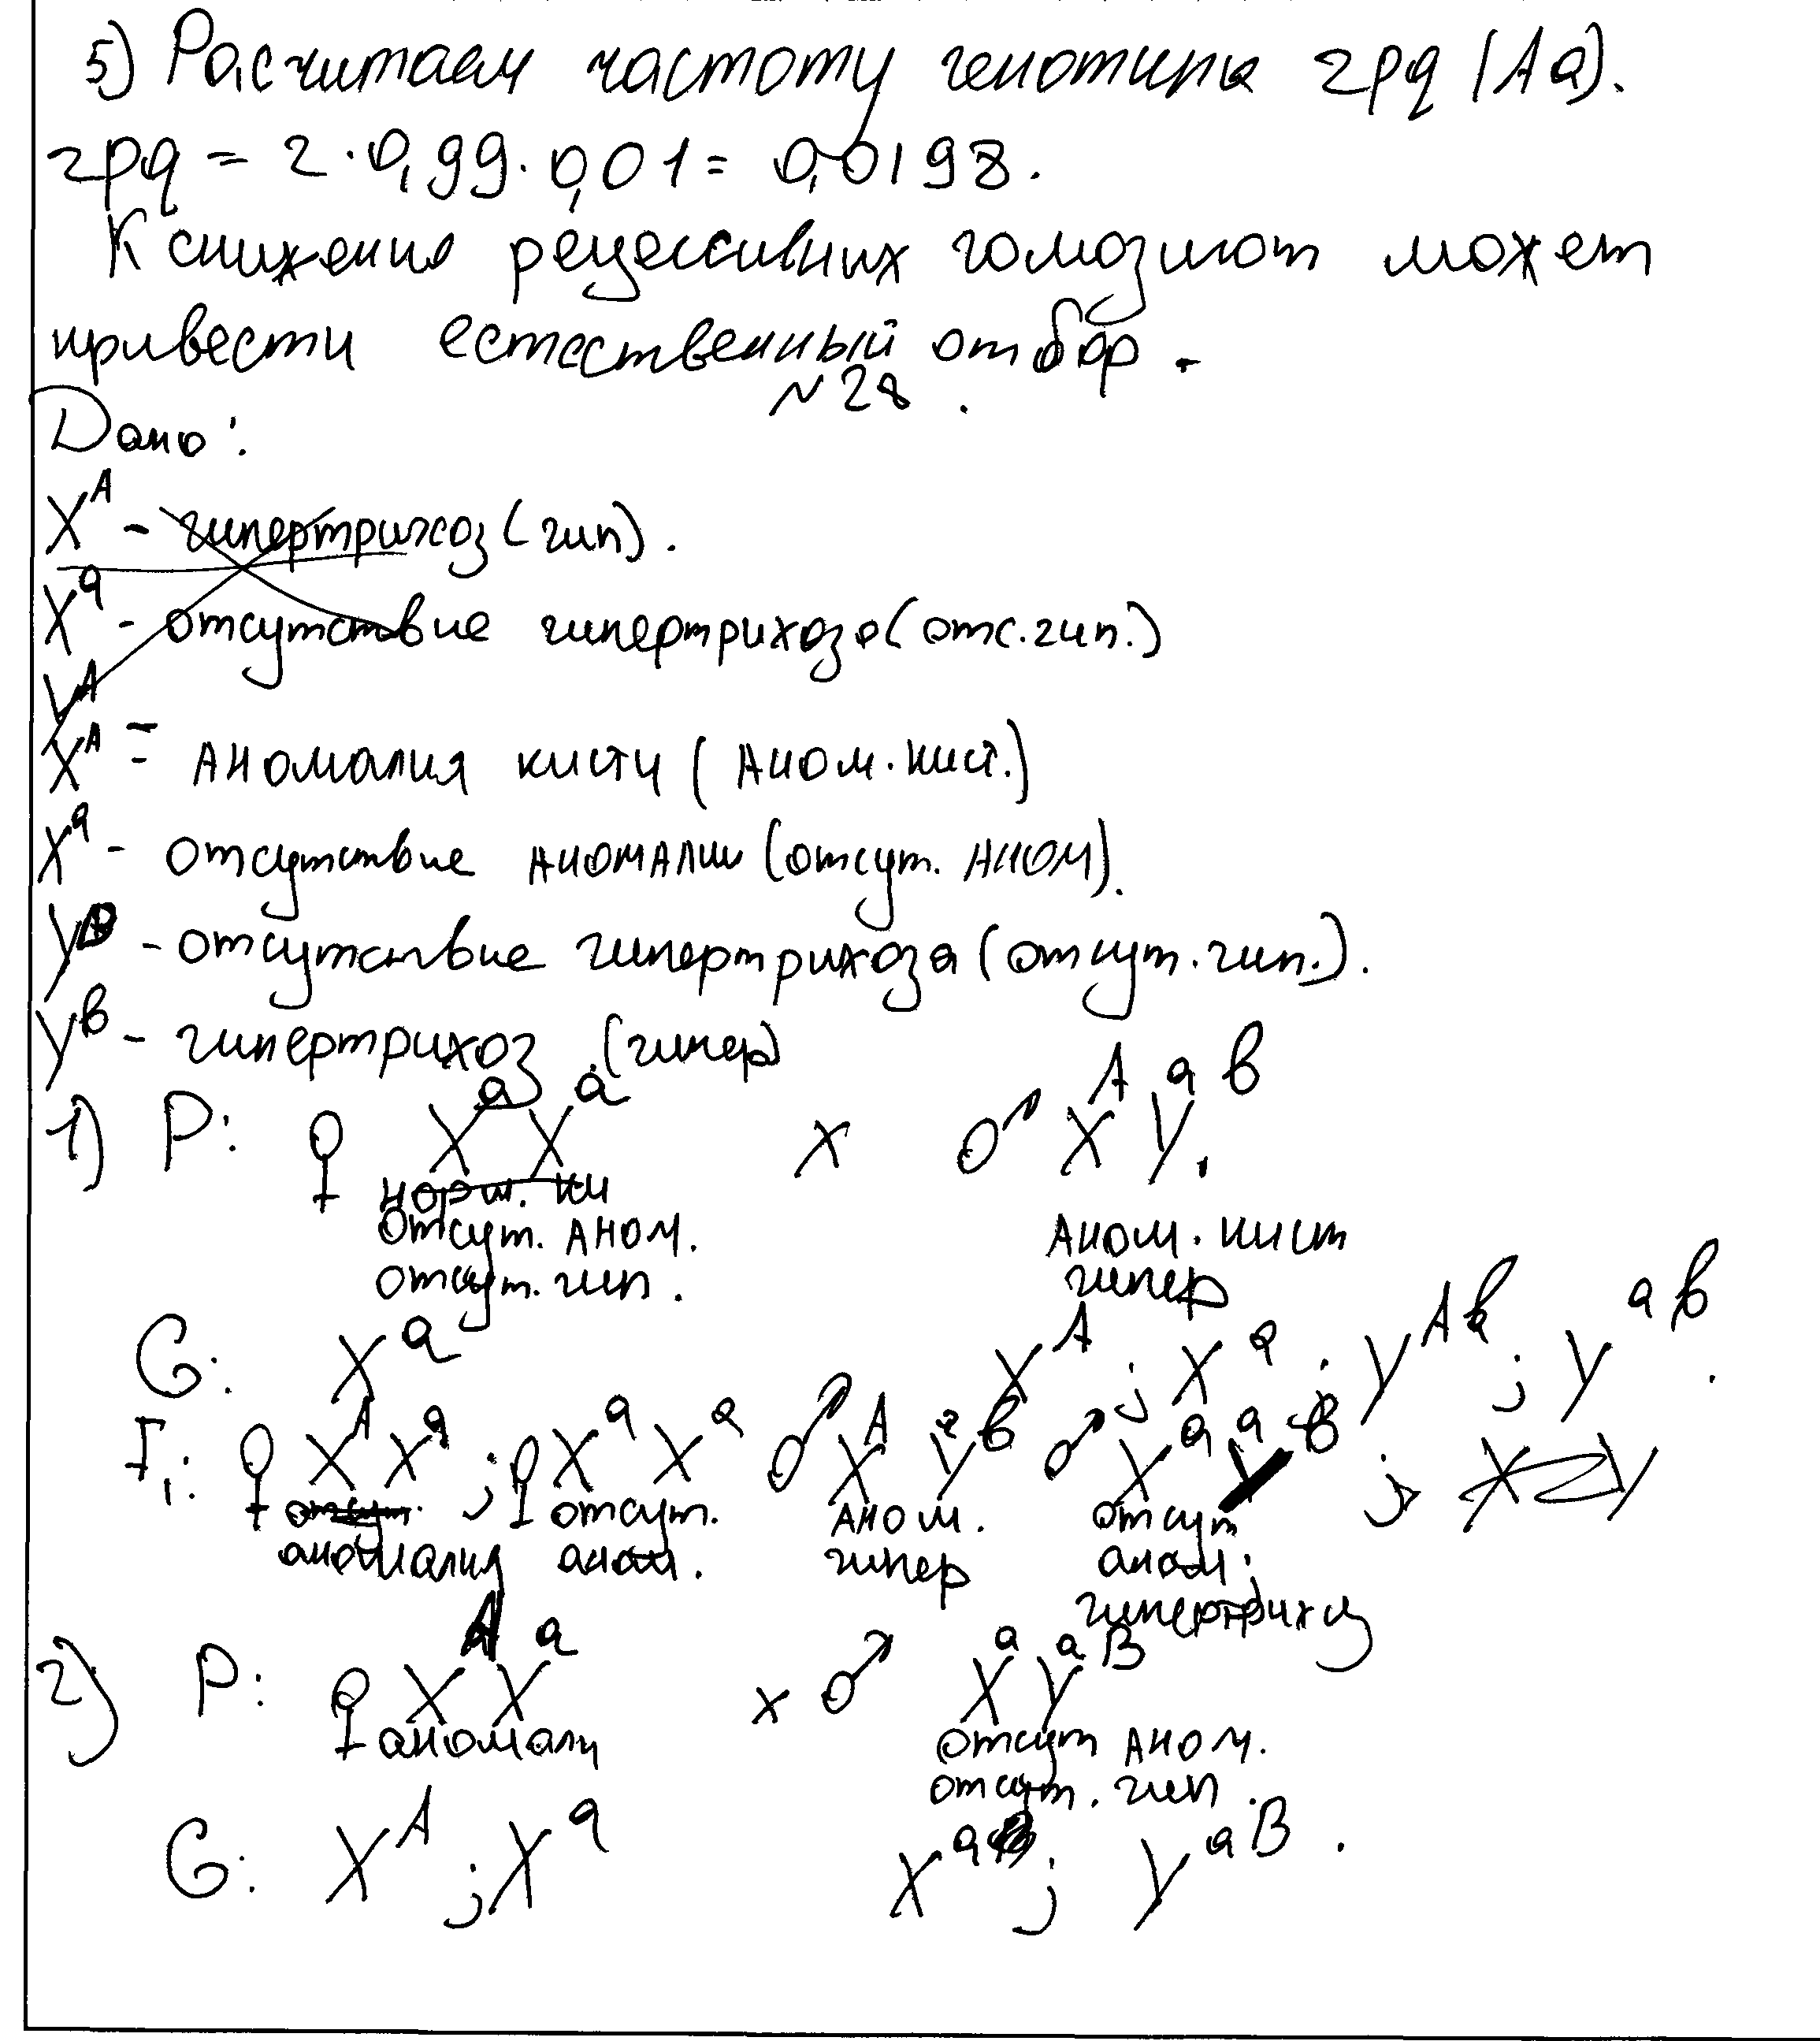 5) Расчитаем частоту генотипа 2pq (Aa).
2pq = 2·0,99·0,01 = 0,0198.
К снижения рецессивных гомозигот может
привести естественный отбор.
№28.
Дано:
X^A - гипертрихоз (гип).
X^a - отсутствие гипертрихоза (отс. гип.)
Y^A -
X^A - аномалия кисти (Аном. кист.)
X^a - отсутствие аномалии (отсут. Аном).
Y^B - отсутствие гипертрихоза (отсут. гип.).
Y^b - гипертрихоз (гипер)
1) P: ♀ X^a X^a x ♂ X^A Y^ab.
норм. ки
отсут. аном. Аном. кист
отсут. гип. гипер
G: X^a X^A; X^a; Y^Ab; Y^ab.
F1: ♀ X^A X^a; ♀ X^a X^a ♂ X^A Y^ab ♂ X^a Y^ab; X Y
отсут. отсут. аном. отсут
аномалия аном. гипер аном;
гипертрихоз
2) P: ♀ X^A X^a x ♂ X^a Y^aB
аномали отсут аном.
отсут. гип.
G: X^A; X^a X^a; Y^aB.